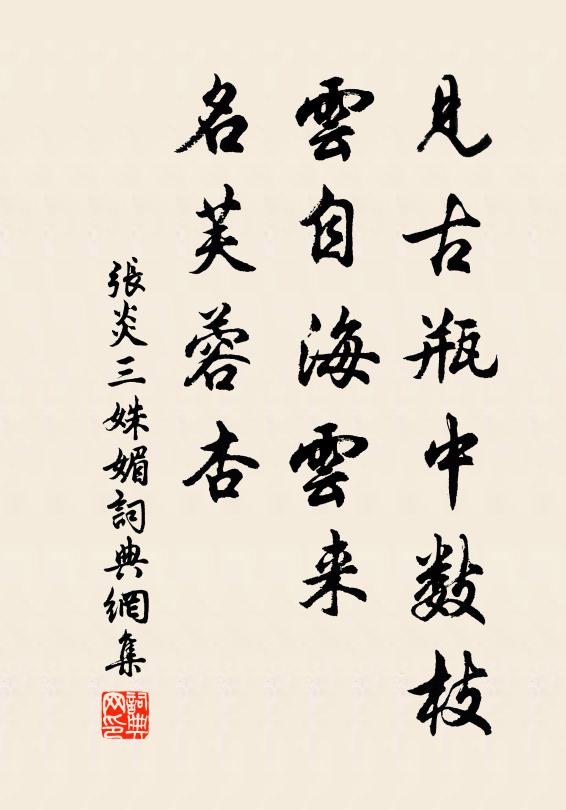 見古瓶中数枝
雲自海雲来
名芙蓉杏
張炎三姝媚詞典網集
詞典网印